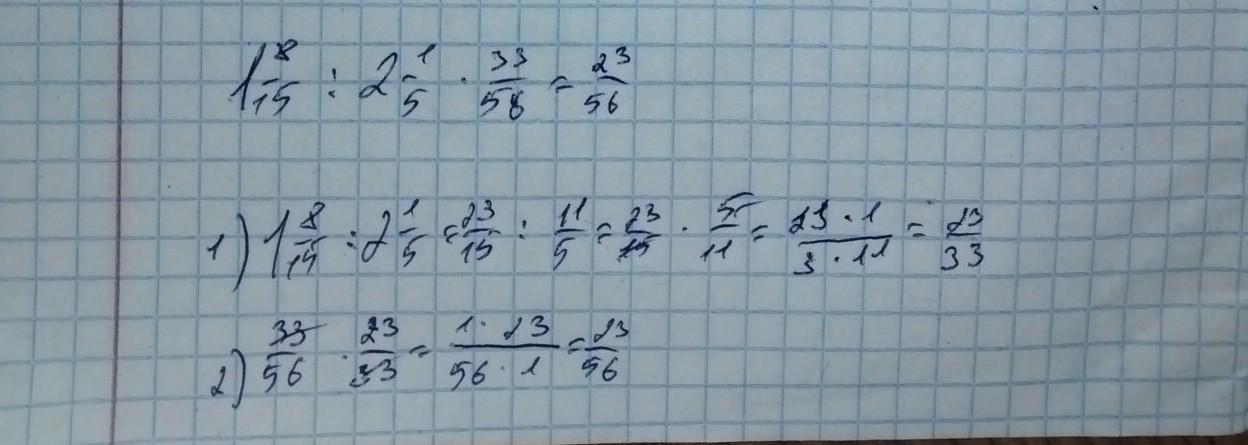 1 8/15 : 2 1/5 · 33/56 = 23/56
1) 1 8/15 : 2 1/5 = 23/15 : 11/5 = 23/15 · 5/11 = 23·1/3·11 = 23/33
2) 33/56 · 23/33 = 1·23/56·1 = 23/56